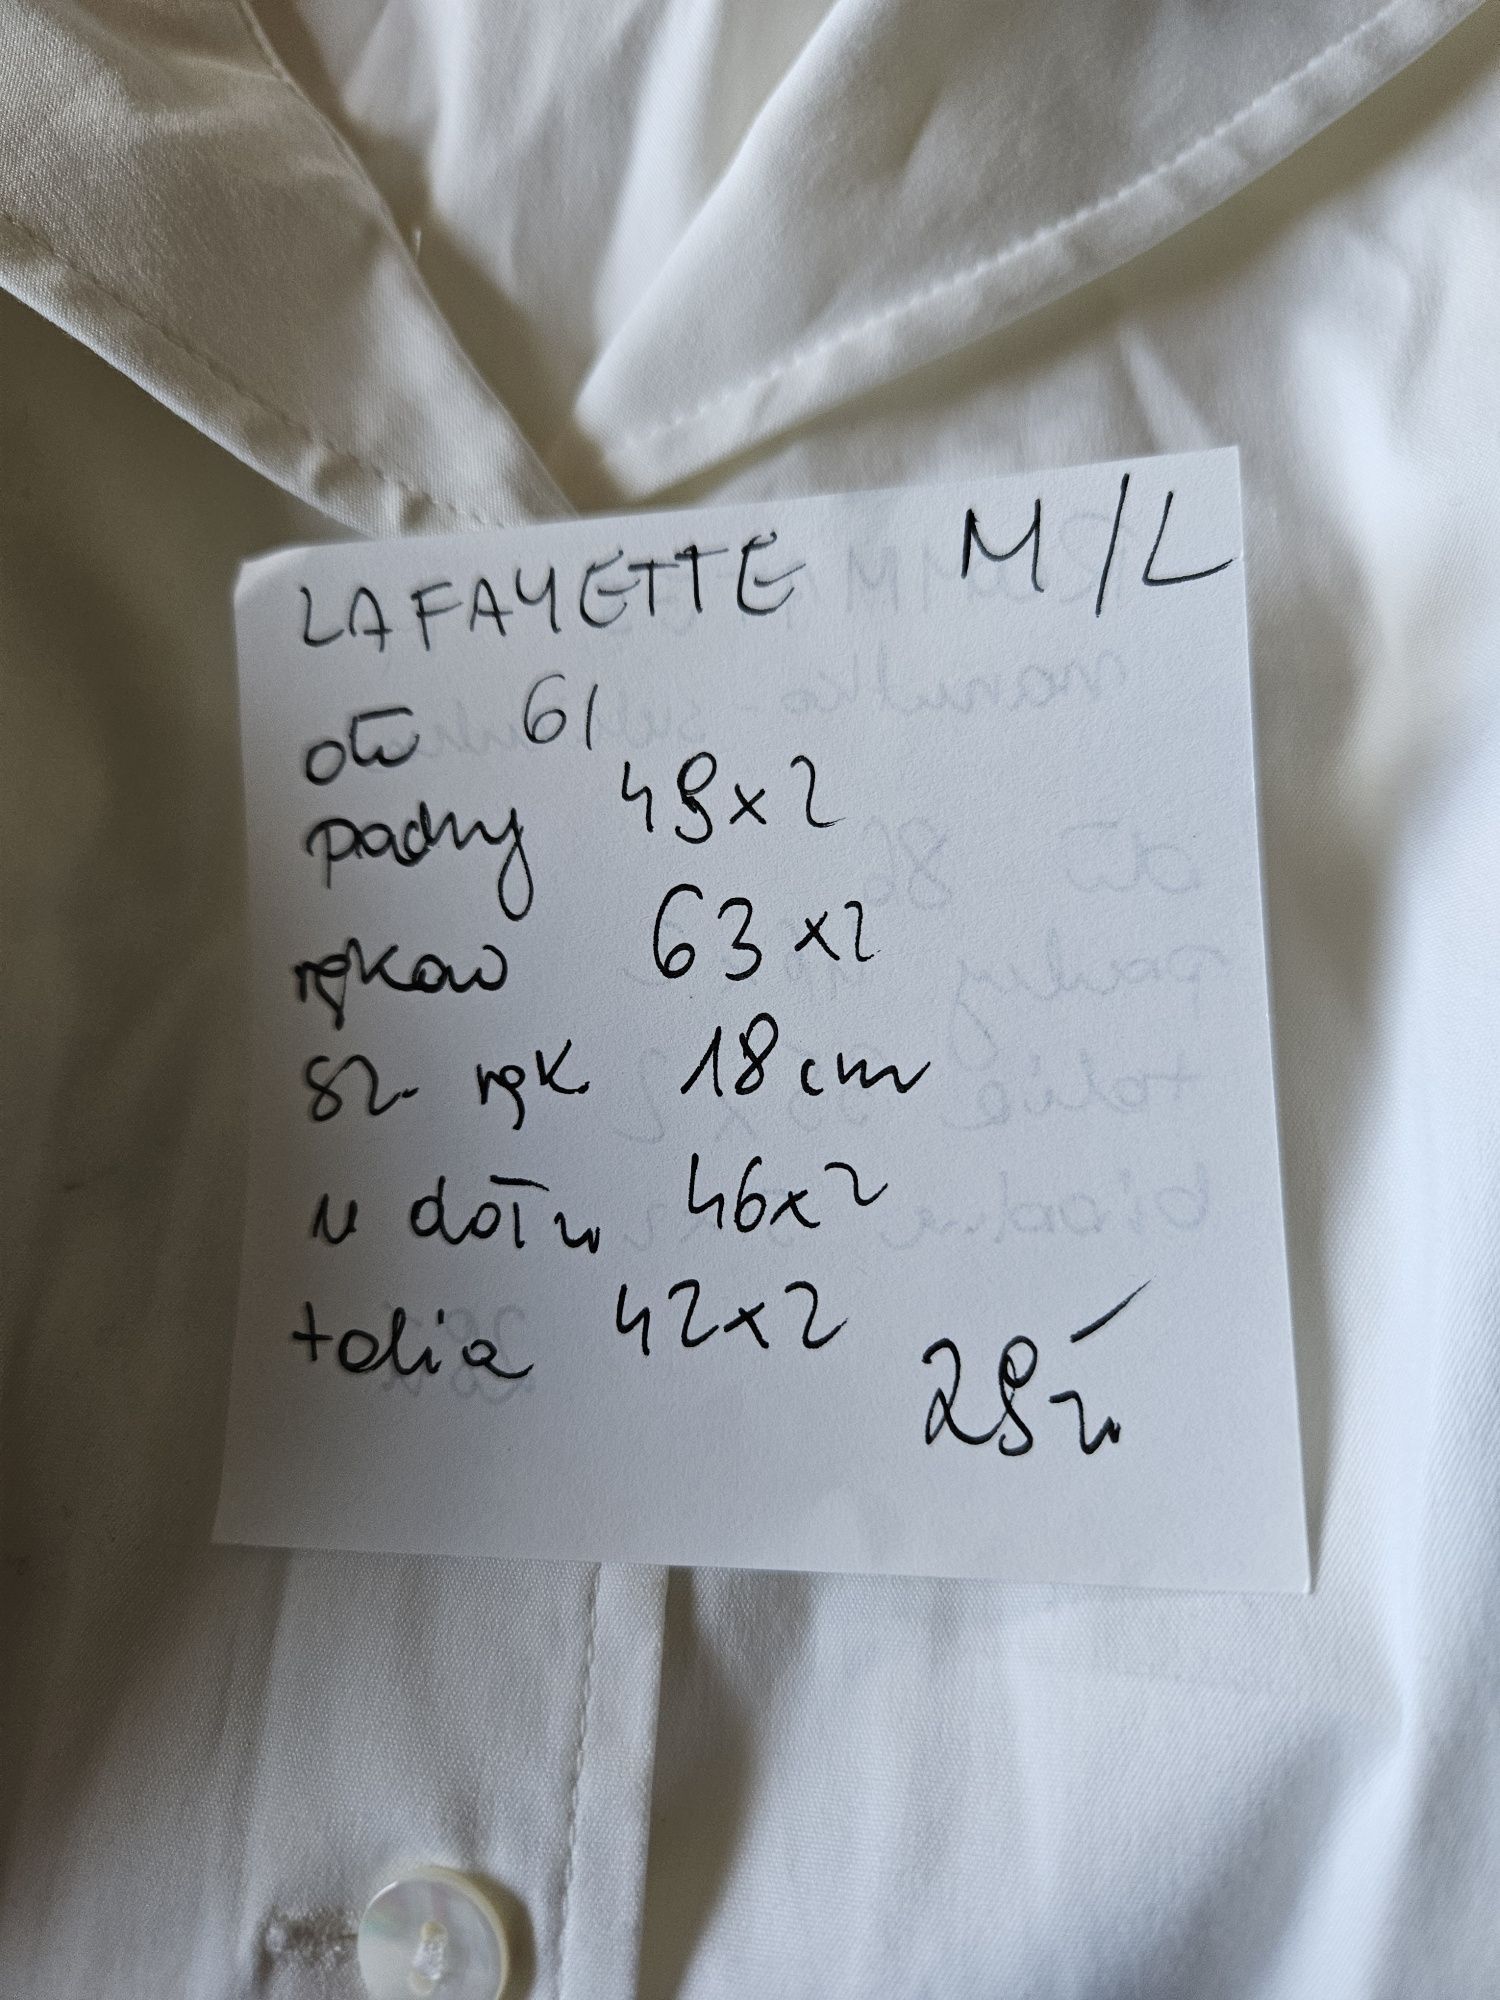 LAFAYETTE M/L
dł 61
pachy 49x2
rękaw 63x2
sz. ręk. 18cm
u dołu 46x2
talia 42x2
29zł